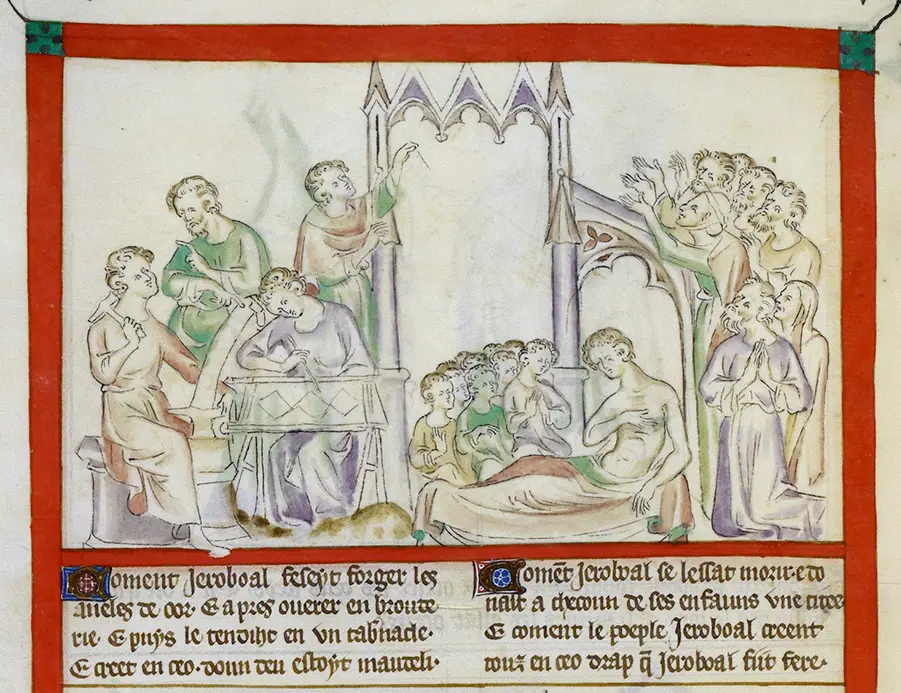 Coment Jeroboal feseyt forger les
aneles de oor. E apres ouerer en broude
rie. E puys le tendiht en vn tab'nacle.
E creet en ceo. doun deu estoyt
Comēt Jeroboal se lessat morir. e do
nait a checoun de ses enfauns vne citee
E coment le poeple Jeroboal creent
touz en ceo drap q̄ Jeroboal fist fere.